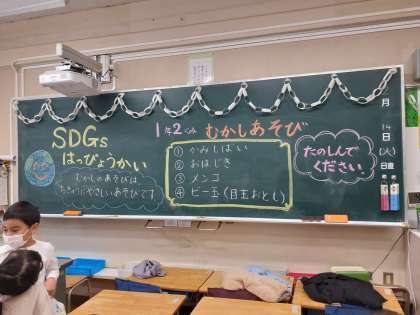 SDGs
はっぴょうかい
むかしのあそびは
ちきゅうにやさしいあそびです
1年2くみ むかしあそび
① かみしばい
② おはじき
③ メンコ
④ ビー玉(目玉おとし)
たのしんで
ください
月
14
日
(火)
日直